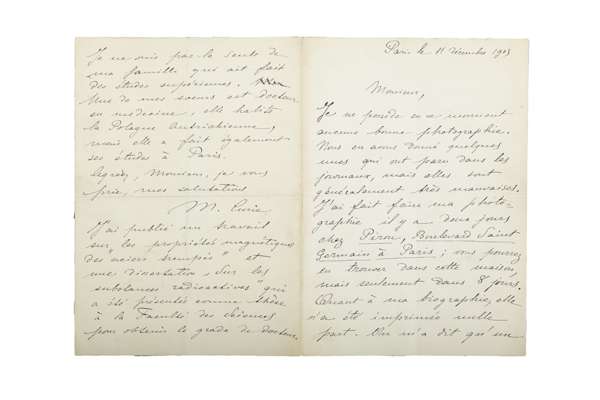 Paris le 11 décembre 1903
Monsieur,
Je ne possède en ce moment
aucune bonne photographie.
Nous en avons donné quelques
unes qui ont paru dans les
journaux, mais elles sont
généralement très mauvaises.
J'ai fait faire ma photo-
graphie il y a deux jours
chez Pirou, Boulevard Saint
Germain à Paris; vous pourrez
en trouver dans cette maison,
mais seulement dans 8 jours.
Quant à ma biographie, elle
n'a été imprimée nulle
part. On m'a dit qu'un
Je ne suis pas la seule de
ma famille qui ait fait
des études supérieures.
Une de mes soeurs est docteur
en médecine, elle habite
la Pologne Autrichienne,
mais elle a fait également
ses études à Paris.
Agréez, Monsieur, je vous
prie, mes salutations
M. Curie
J'ai publié un travail
sur "les propriétés magnétiques
des aciers trempés" et
une dissertation "Sur les
substances radioactives" qui
a été présentée comme thèse
à la Faculté des Sciences
pour obtenir le grade de docteur.